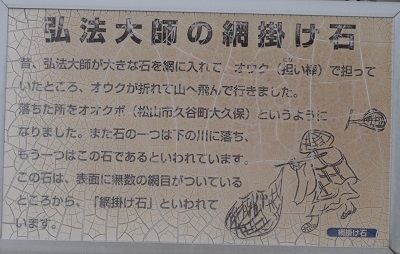 弘法大師の網掛け石
昔、弘法大師が大きな石を網に入れて、オウク(担い棒)で担って
いたところ、オウクが折れて山へ飛んで行きました。
落ちた所をオオクボ(松山市久谷町大久保)というように
なりました。また石の一つは下の川に落ち、
もう一つはこの石であるといわれています。
この石は、表面に無数の網目がついている
ところから、「網掛け石」といわれて
います。
網掛け石